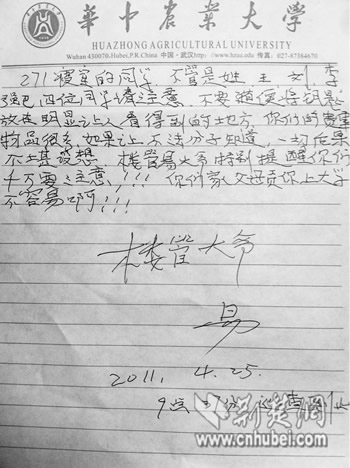 華中農業大学
HUAZHONG AGRICULTURAL UNIVERSITY
Wuhan 430070,Hubei,P.R.China 中国·武汉http://www.hzau.edu.cn 027-87384670
271寝室的同学 不管是姓王 刘 李
强巴四位同学请注意 不要随便将钥匙
放在明显让人看得到的土地方,你们的贵重
物品很多,如果让不法分子知道,一切后果
不堪设想,楼管易大爷特别提醒你们
千万要注意!!!你们家父母贡你上大学
不容易啊!!!
楼管大爷
易
2011. 4.25.
9点
新楚网
www.cnhubei.com